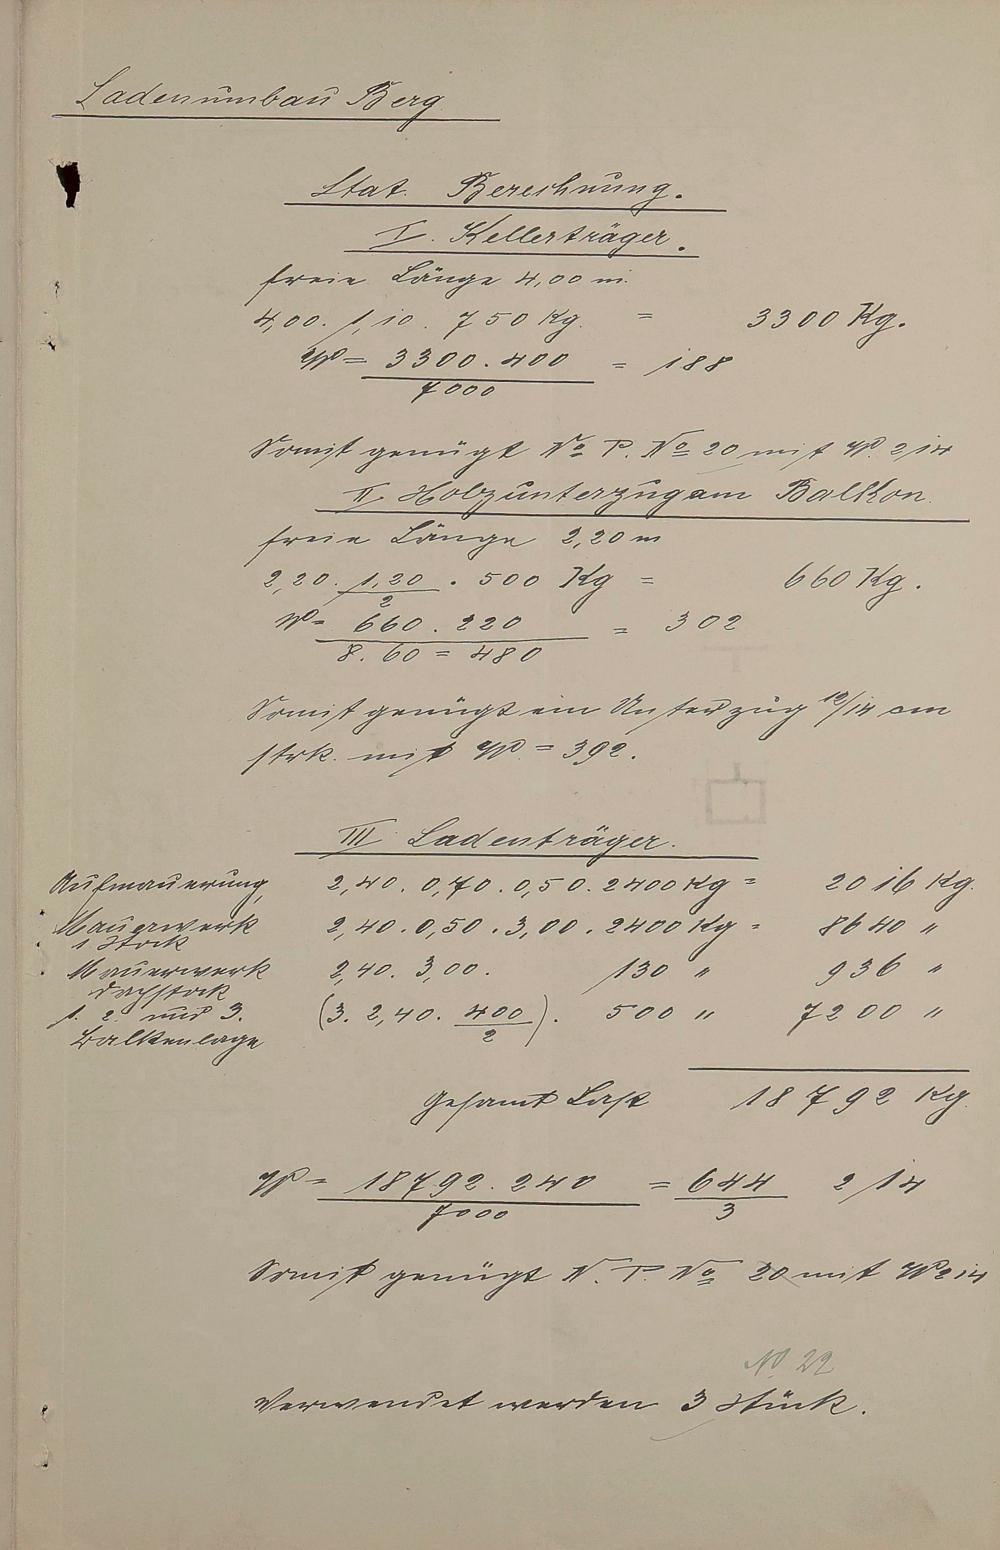 Ladenumbau Berg
Stat. Berechnung.
I. Kellerträger.
freie Länge 4,00 m.
4,00. 1,10. 750 Kg. = 3300 Kg.
W = 3300. 400 = 188
7000
Somit genügt No P. No 20 mit W. 214
II. Holzunterzug am Balkon.
freie Länge 2,20 m
2,20. 1,20 . 500 Kg = 660 Kg.
2
W = 660. 220 = 302
8. 60 = 480
Somit genügt ein Unterzug 12/14 cm
strk. mit W = 392.
III Ladenträger.
Aufmauerung, 2,40. 0,70. 0,50. 2400 Kg = 2016 Kg.
Mauerwerk 2,40. 0,50. 3,00. 2400 Kg = 8640 "
1 Stock
Mauerwerk 2,40. 3,00. 130 " 936 "
Dachstock
1. 2. und 3. (3. 2,40. 400). 500 " 7200 "
2
Balkenlage
Gesamt Last 18792 Kg.
W = 18792. 240 = 644 214
7000 3
Somit genügt N. P. No 20 mit W 214
No 22
Verwendet werden 3 Stück.